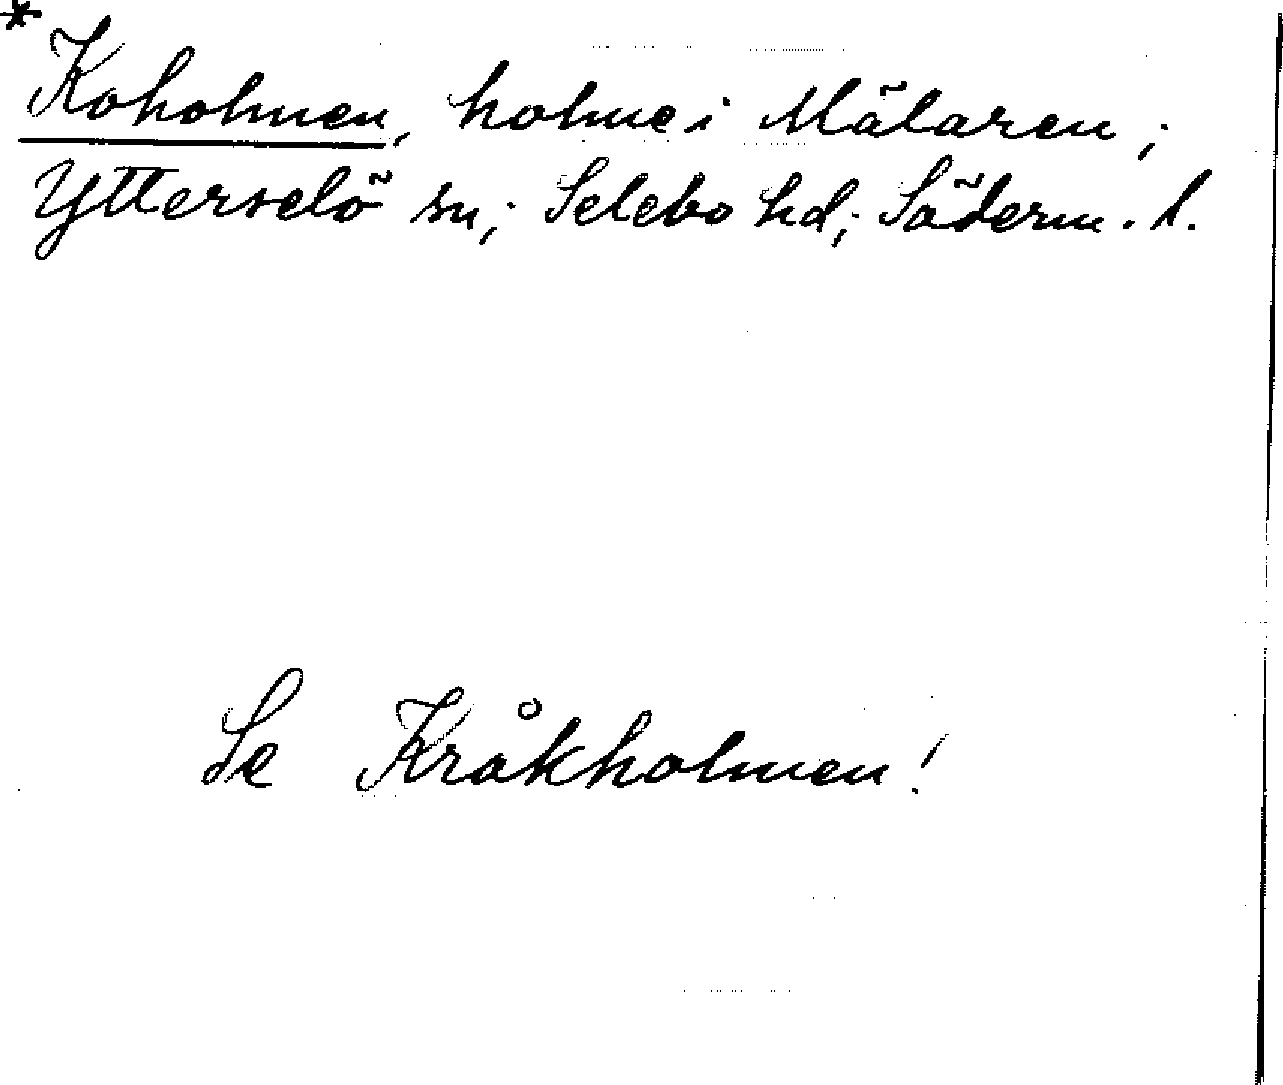 *
Koholmen, holme i Mälaren;
Ytterselö sn; Selebo hd; Söderm. l.
Se Kråkholmen!